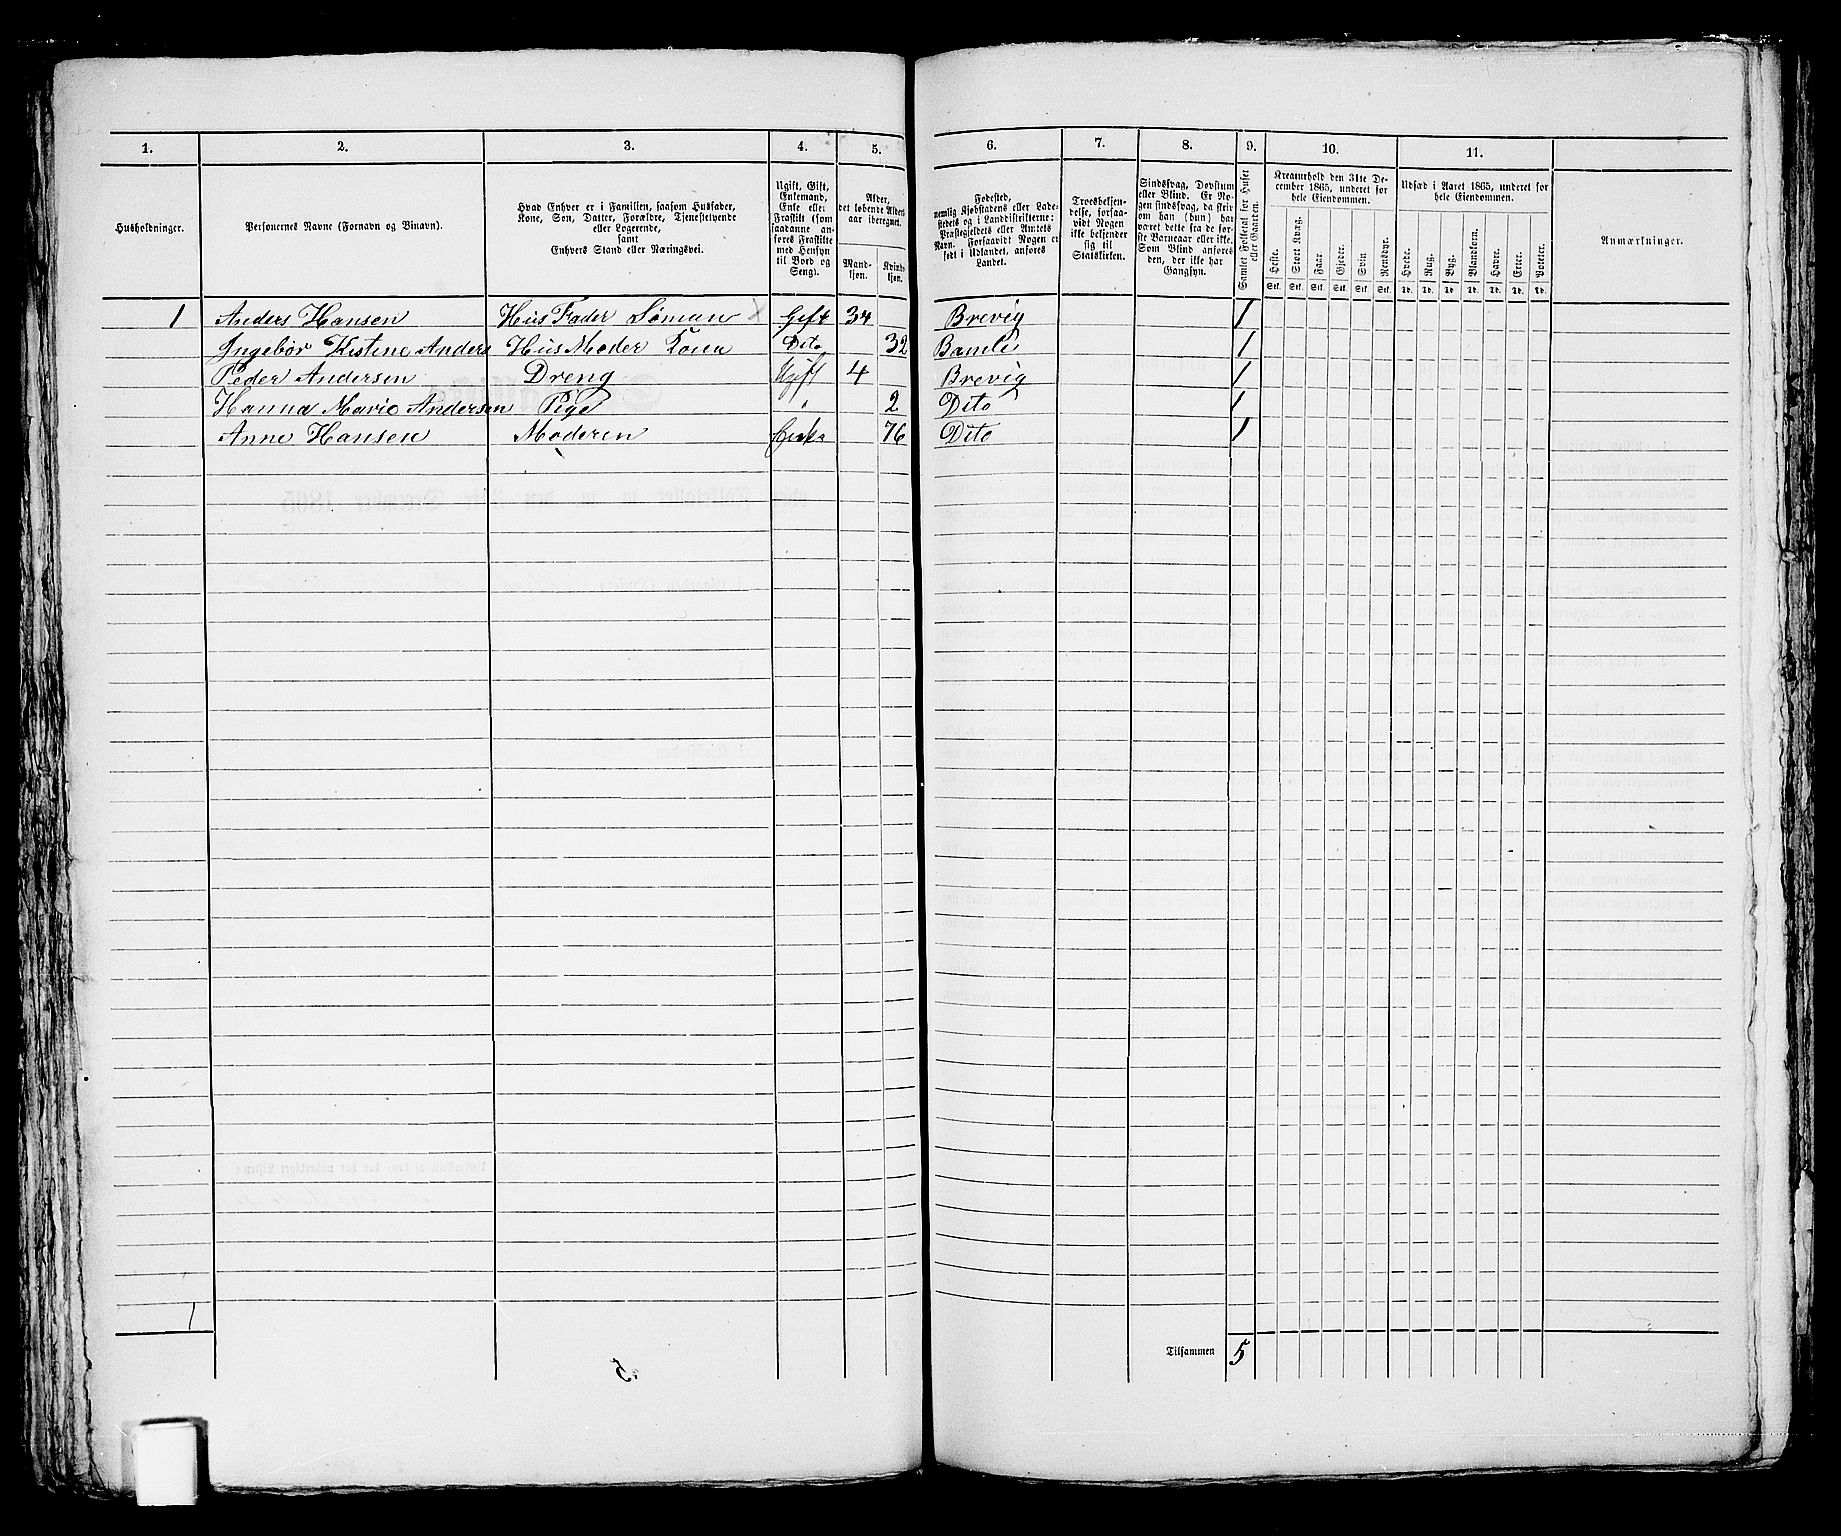 1. 2. 3. 4. 5. 6. 7. 8. 9. 10. 11.
Husholdninger.
Personernes Navne (Fornavn og Binavn).
Hvad Enhver er i Familien, saasom Husfader,
Kone, Søn, Datter, Forældre, Tjenestetyende
eller Logerende,
samt
Enhvers Stand eller Næringsvei.
Ugift, Gift,
Enkemand,
Enke eller
Fraskilt (som
saadanne an-
føres Fraskilte
med Hensyn
til Bord og
Seng).
Alder,
det løbende Alders-
aar iberegnet.
Mand-
kjøn.
Kvind-
kjøn.
Fødested,
nemlig Kjøbstadens eller Lade-
stedets og i Landdistrikterne:
Præstegjeldets eller Amtets
Navn. Forsaavidt Nogen er
født i Udlandet, anføres
Landet.
Troesbekjen-
delse, forsaa-
vidt Nogen
ikke bekjender
sig til
Statskirken.
Sindssvag, Døvstum
eller Blind. Er No-
gen sindssvag, da skriv
om han (hun) har
været dette fra de før-
ste Barneaar eller ikke.
Som Blind anføres
den, der ikke har
Gangsyn.
Samlet Folketal for Huset
eller Gaarden.
Kreaturhold den 31te De-
cember 1865, underet for
hele Eiendommen.
Heste. Stort Kvæg. Faar. Gjeder. Svin. Rensdyr.
Stk. Stk. Stk. Stk. Stk. Stk.
Udsæd i Aaret 1865, underet for
hele Eiendommen.
Hvede. Rug. Byg. Blandkorn. Havre. Erter. Poteter.
Td. Td. Td. Td. Td. Td. Td.
Anmærkninger.
1 Anders Hansen Hus Fader Søman Gift 34 Brevig 1
Ingebør Kistine Anders Hus Moder Konen Dito 32 Bamle 1
Peder Andersen Dreng Ugift 4 Brevig 1
Hanna Marie Andersen Pige 2 Dito 1
Anne Hansen Moderen Enke 76 Dito 1
1
Tilsammen 5
5